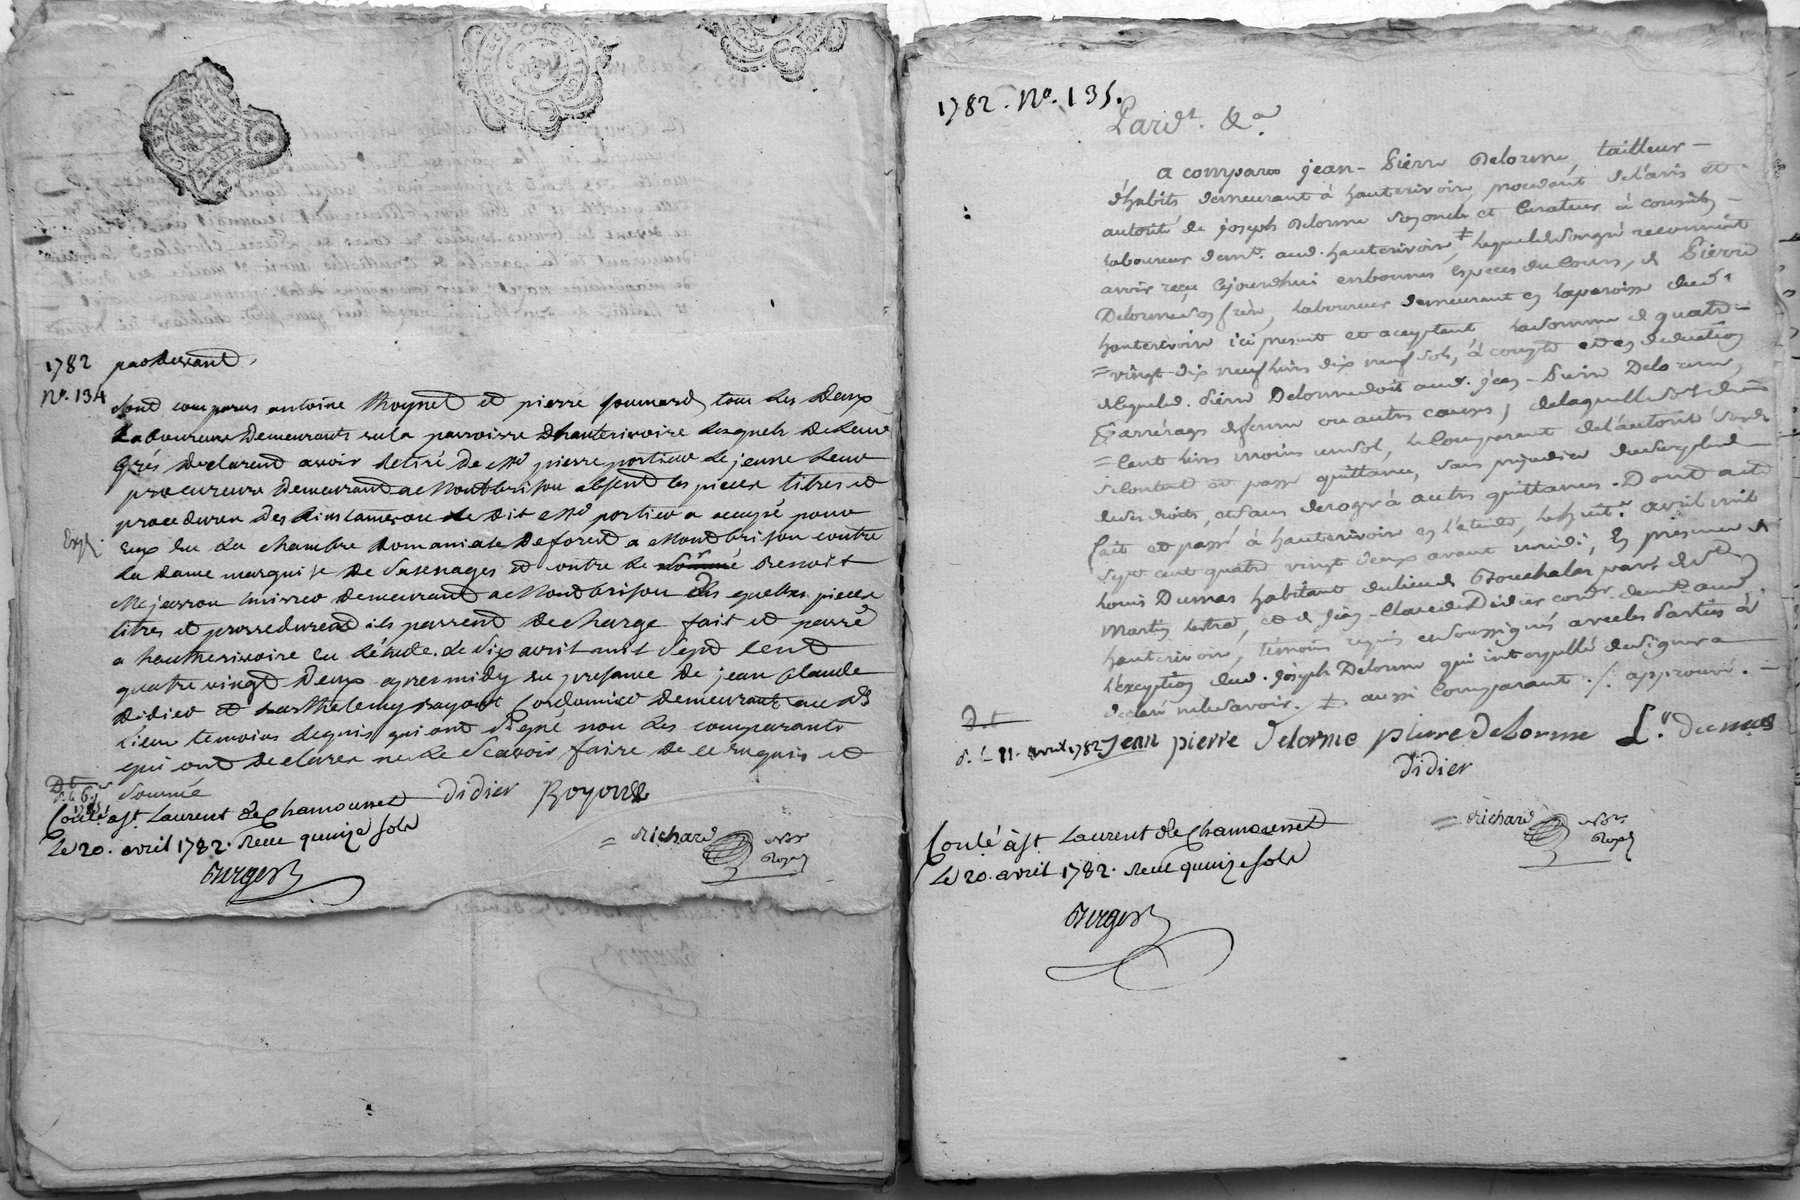 1782 pardevant
No. 134
sont comparus antoine Thoynet et pierre tous les deux
Laboureurs Demeurants sur la parroisse Dhauterivoire lesquels De leur
Grés Declarent avoir Retiré De me pierre portier Le jeune leur
procureur Demeurant a Montbrison absent les pieces titres et
procedures Des instances que Le Dit me portier a occupé pour
Exp.
Eux en La chambre Domaniale De forest a Montbrison contre
La dame marquise De Sassenages et contre Le nommé Benoit
huissier Demeurant a Montbrison Des quelles pieces
titres et procedures ils passent De charge fait et passé
a hauterivoire en Létude. Le Six avril mil Sept Cent
quatre vingt Deux apres midy en presance De jean Claude
Didier et Barthelemy Royout Cordonnier Demeurant au dt
Lieu temoins Requis qui ont Signé non Les comparants
qui ont Declarer ne Le Scavoir faire De ce Enquis et
Sommé
didier Royout
Conlé à St Laurent de Chamousset
Le 20. avril 1782. Reçu quinze sols
Burger
= Richard Nore
Royal
1782. No. 135.
Pardt. &a.
A comparu jean-Pierre Delorme, tailleur
d'habits demeurant à hauterivoire, procedant de l'avis et
autorité de joseph Delorme second et Curateur à conseils
laboureur demt. aud. hauterivoire ‡, lequel de son gré reconnoit
avoir reçu cejourdhui en bonnes especes du cours, de Pierre
Delorme son frere, laboureur demeurant en la paroisse dud.
hauterivoire ici present et acceptant la somme de quatre
= vingt dix neuf livres dix neuf sols, à compte et en deduction
de ce que led. Pierre Delorme doit aud. jean-Pierre Delorme,
d'arrérages de ferme ou autres causes, de laquelle somme de
= Cent livres moins un sol, le Comparant de l'autorité susd.
se contente et passe quittance, sans prejudice du surplus
de ses droits, et sans deroger à autres quittances. Dont acte
fait et passé à hauterivoire en l'etude, le huit. avril mil
sept cent quatre vingt deux avant midi, En presence de
Louis Dumas habitant du lieu de Bouchala parr. de St
Martin Lestra, et de jean-Claude Didier cordr. demt. aud.
hauterivoire, témoins requis et soussignés avec les Parties à
l'exception dud. joseph Delorme qui interpellé de signer a
declaré ne le savoir. ‡. aussi Comparant ./. approuvé.
d. L 11. avril 1782
Jean pierre delorme pierre delorme L. dumas
didier
Conlé à St. Laurent de Chamousset
Le 20. avril 1782. Reçu quinze sols
= Richard Nore
Royal
Burger